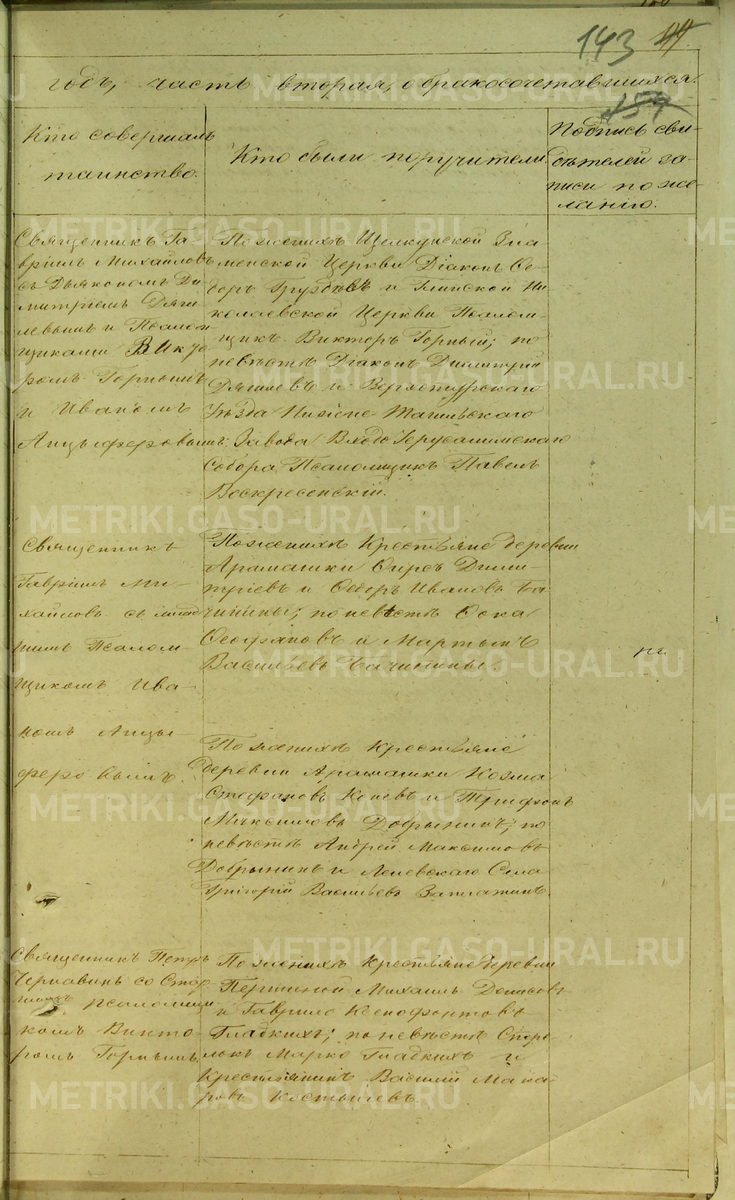 143
годъ, часть вторая, о бракосочетавшихся.
159
Кто совершалъ
таинство.
Кто были поручители.
Подпись сви-
дѣтелей за-
писи по же-
ланію.
Священникъ Га-
вріилъ Михайловъ
съ Дьякономъ Ди-
митріемъ Дяги-
левымъ и Псалом-
щиками Викто
ромъ Горнымъ
и Иваномъ
Анцыферовымъ.
По женихѣ Щелкунской Зна
менской Церкви Діаконъ Ѳе-
доръ Груздевъ и Глинской Ни
колаевской Церкви Псалом-
щикъ Викторъ Горный; по
невѣстѣ Діаконъ Димитрій
Дягилевъ и Верхотурскаго
Уѣзда Нижне-Тагильскаго
Завода Входо-Іерусалимскаго
Собора Псаломщикъ Павелъ
Воскресенскій.
Священникъ
Гавріилъ Ми-
хайловъ съ млад
шимъ Псалом
щикомъ Ива-
номъ Анцы-
феровымъ.
По женихѣ Крестьяне деревни
Арамашки Димит
тріевъ и Ѳедоръ Ивановъ
по невѣстѣ Ѳока
Ѳеофановъ и Мартынъ
Васильевъ
По женихѣ Крестьяне
деревни Арамашки Козма
Стефановъ и Трифонъ
Максимовъ Добрынинъ; по
невѣстѣ Андрей Максимовъ
Добрынинъ и Села
Григорій Васильевъ
Священникъ Петръ
Чернавинъ со Стар
шимъ псаломщи
комъ Викто-
ромъ Горнымъ.
По женихѣ Крестьяне деревни
Першиной Михаилъ Денисовъ
и Гаврило Ксенофонтовъ
Гладкихъ; по невѣстѣ
Марко Гладкихъ и
Крестьянинъ Василій Мака
ровъ Костылевъ.
METRIKI.GASO-URAL.RU